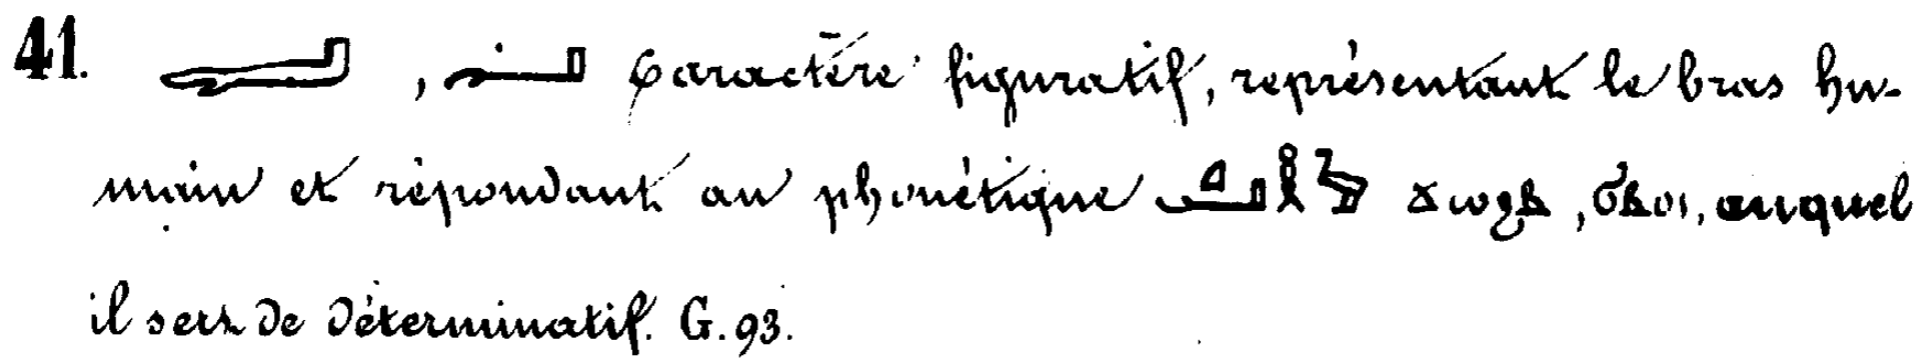 41. 𓂝 , 𓂝 Caractère figuratif, représentant le bras hu-
main et répondant au phonétique ϭⲃⲟⲓ, auquel
il sert de déterminatif. G. 93.